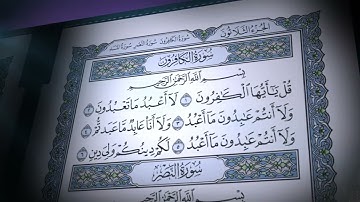 الجزء الثلاثون
سورة الكافرون سورة النصر سورة المسد
سُورَةُ الكَافِرُونَ
بِسْمِ اللَّهِ الرَّحْمَٰنِ الرَّحِيمِ
قُلْ يَٰٓأَيُّهَا ٱلْكَٰفِرُونَ ١ لَآ أَعْبُدُ مَا تَعْبُدُونَ ٢
وَلَآ أَنتُمْ عَٰبِدُونَ مَآ أَعْبُدُ ٣ وَلَآ أَنَا۠ عَابِدٌ مَّا عَبَدتُّمْ ٤
وَلَآ أَنتُمْ عَٰبِدُونَ مَآ أَعْبُدُ ٥ لَكُمْ دِينُكُمْ وَلِىَ دِينِ ٦
سُورَةُ النَّصْرِ
بِسْمِ اللَّهِ الرَّحْمَٰنِ الرَّحِيمِ